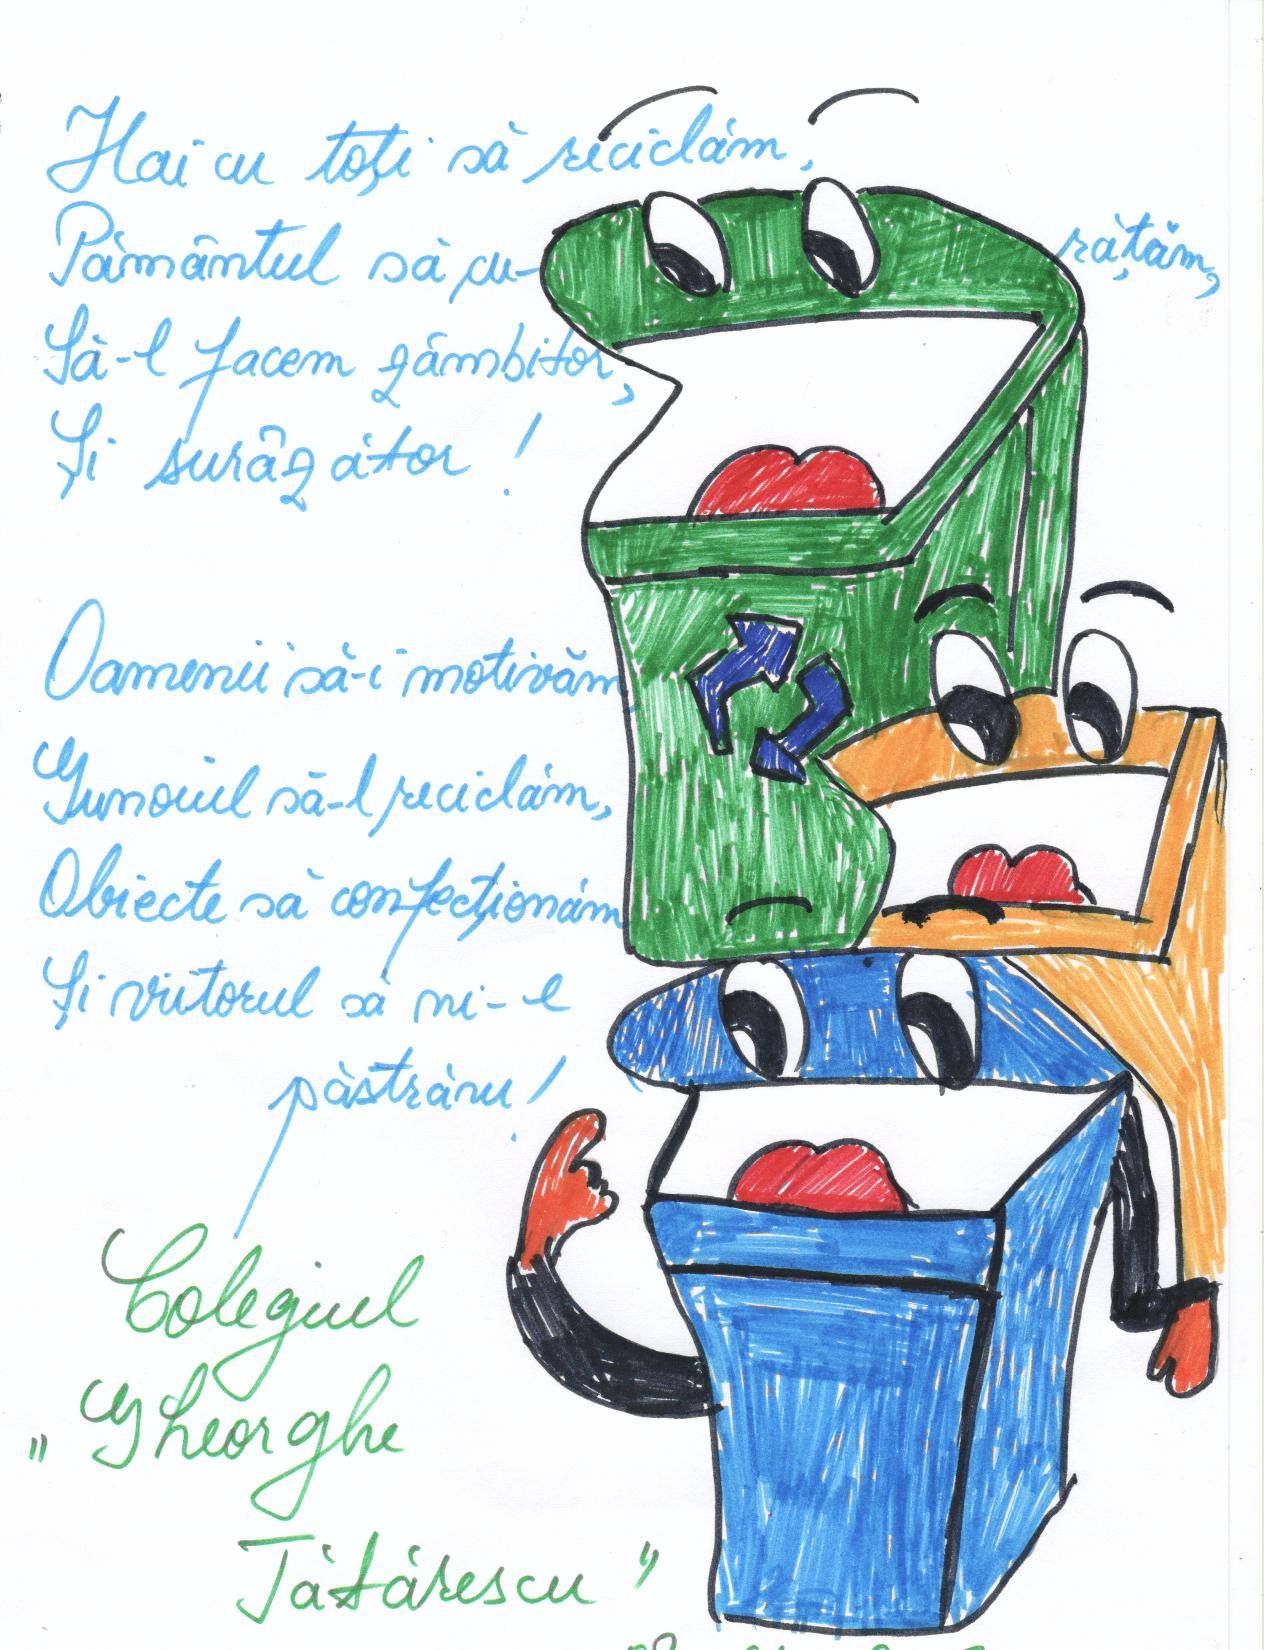 Hai cu toți să reciclăm,
Pământul să cu-rățăm,
Să-l facem zâmbitor,
Și surâzător!
Oamenii să-i motivăm,
Gunoiul să-l reciclăm,
Obiecte să confecționăm
Și viitorul să ni-l
păstrăm!
Colegiul
„Gheorghe
Tătărescu”